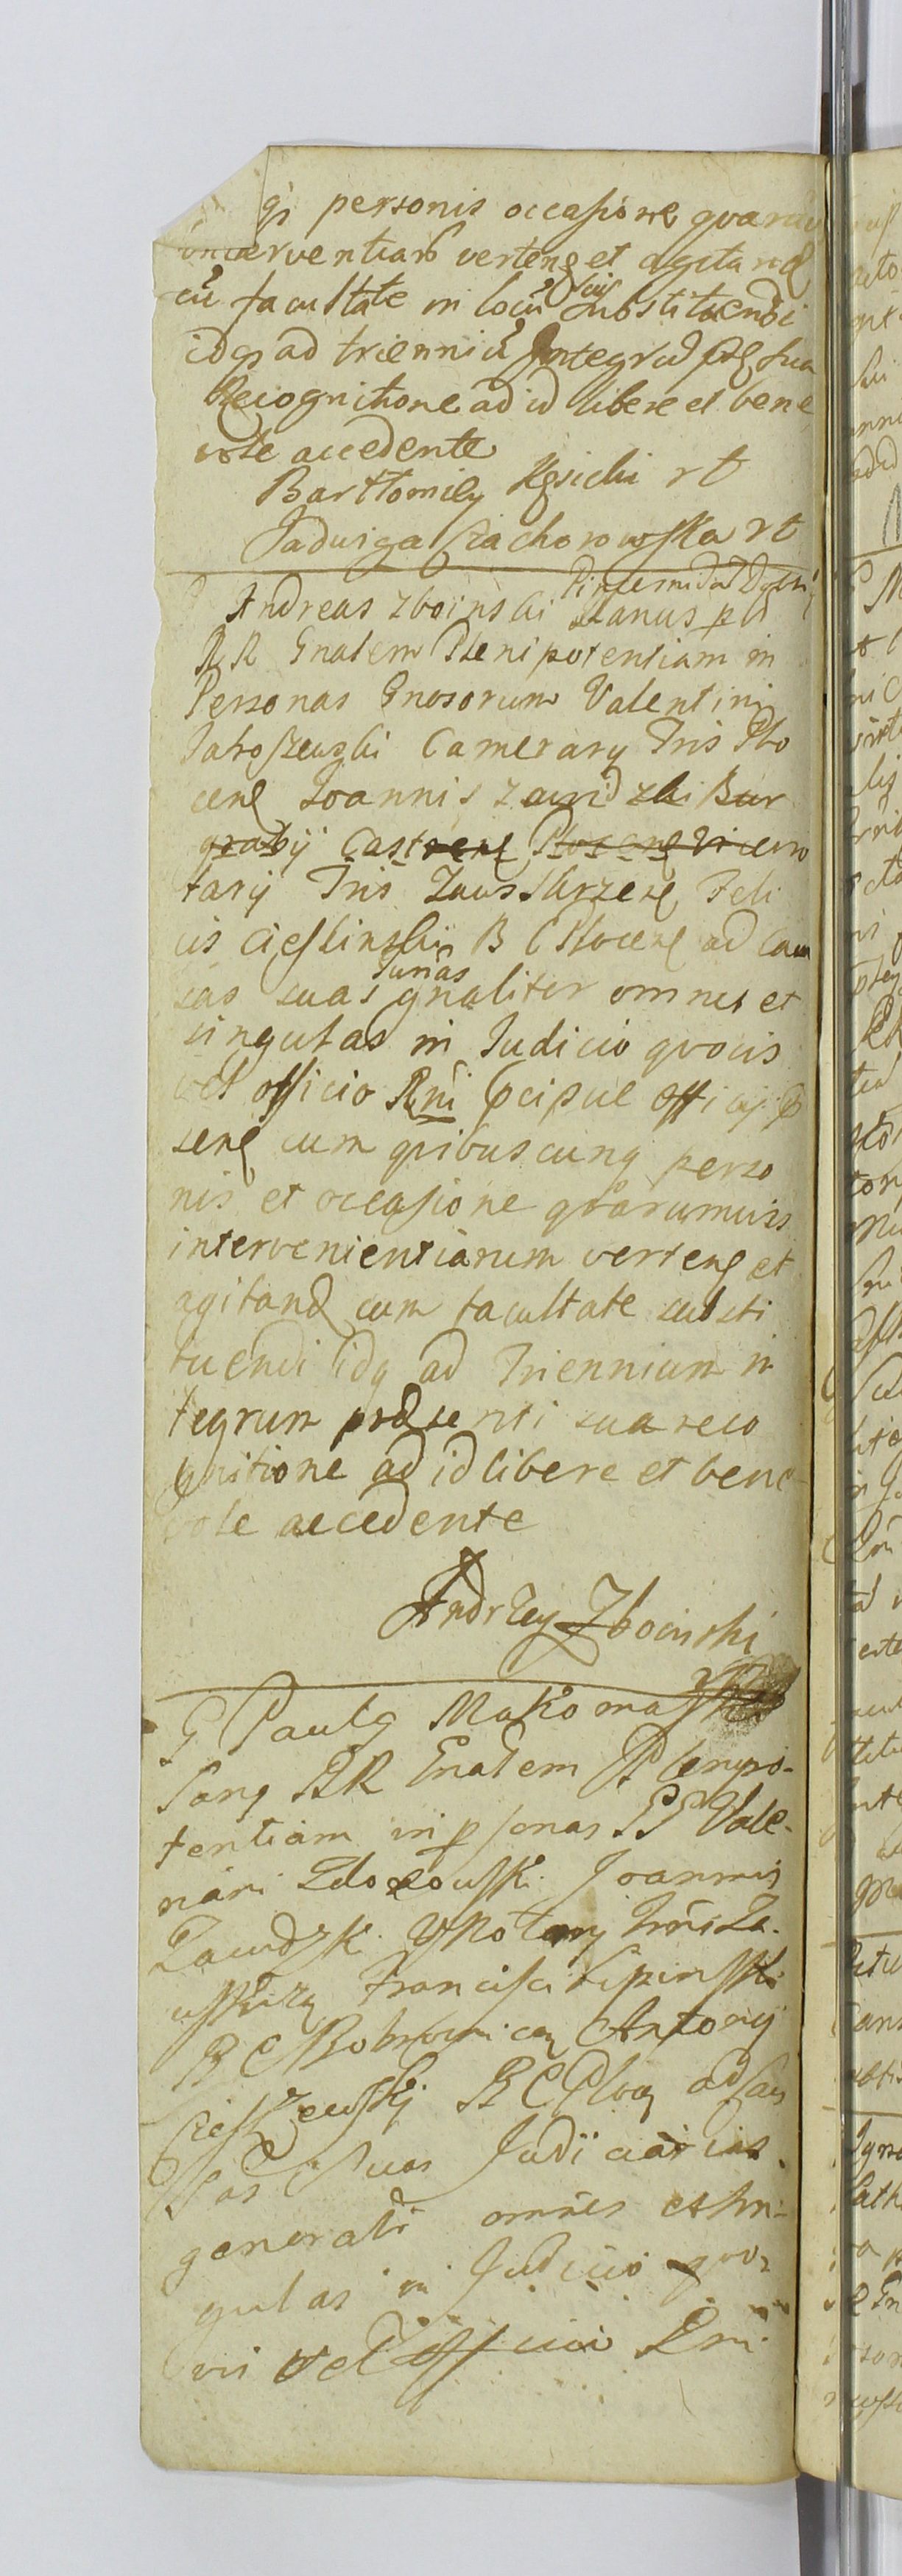 qs personis occasione quarum
interventiarum verteng et agitand
cu facultate in locu sui substituendi
idqs ad trienniu Integru sua
Recognitione ad id libere et bene
vole accedente
Barttomiey rt
Jadwiga Ciachorowska rt
Andreas Zboinski Pincernida Dobrz Sanus
RR Gnalem Plenipotentiam in
Personas Gnosorum Valentini
Jaroszewski Camerary Tris Plo
cens Joannis Zawidzki Bur
grabij Castrens Plocens Viceno
tarij Tris Zawskrzens Feli
cis Cieslinskij B C Plocens ad Cau
sas suas Jurias gnaliter omnes et
singulas in Judicio quocis
vel officio Rni Pcipue officij P
sens cum qribuscunq perso
nis et occasione qrarumvis
intervenientiarum vertens et
agitand cum facultate substi
tuendi idq ad Triennium in
tegrum praesenti sua reco
gnitione ad id libere et bene
vole accedente
Andrzey Zboinski
G Paulg Makomaski
Sang RR Gnalem Plenipo-
tentiam in psonas GG Vale-
riani Joannis
Zawidzk VNotary Trris Za-
wskrza Francisci Lipinski
B C Bobrownicen Antonij
Cieszewskij B C Ploc ad Cau
sas Suas Judiciarias
generali omnes et sin-
gulas in Judicio quo-
vis vel Officio Rni